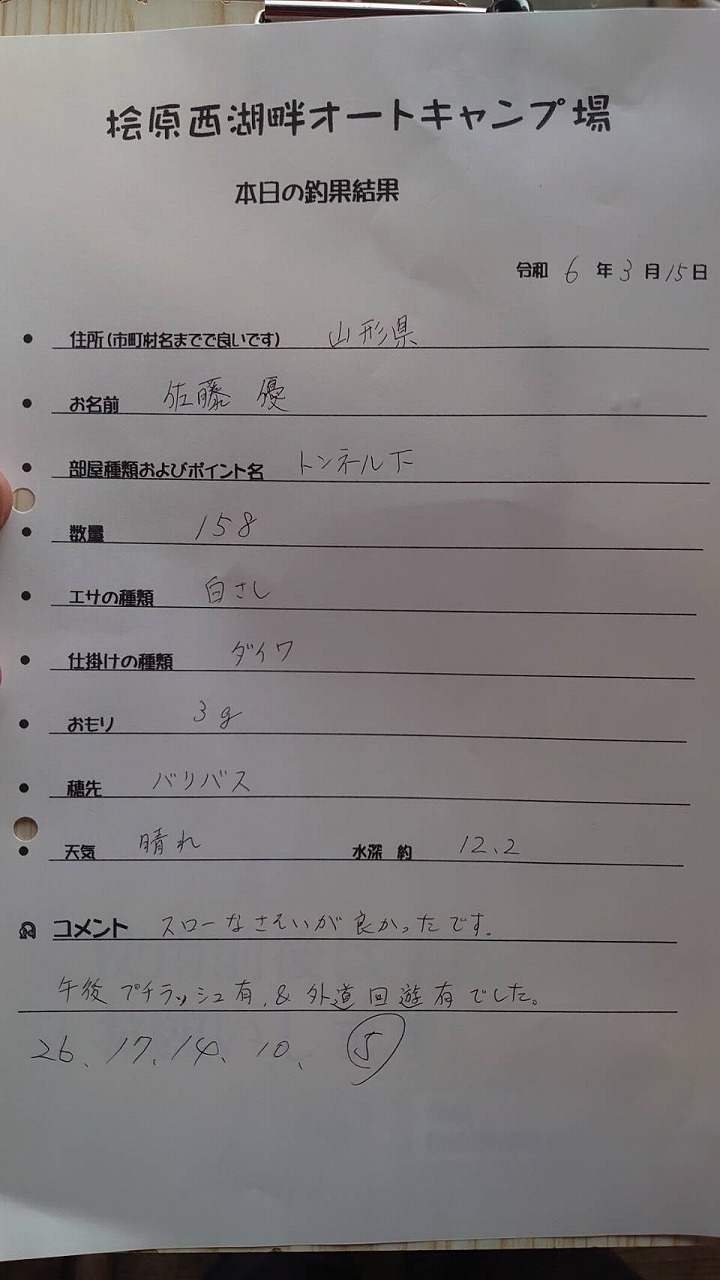 桧原西湖畔オートキャンプ場
本日の釣果結果
令和 6 年 3 月 15 日
• 住所(市町村名までで良いです) 山形県
• お名前 佐藤 優
• 部屋種類およびポイント名 トンネル下
• 数量 158
• エサの種類 白さし
• 仕掛けの種類 ダイワ
• おもり 3g
• 穂先 バリバス
• 天気 晴れ 水深 約 12.2
コメント スローなさそいが良かったです.
午後 プチラッシュ有、& 外道回遊有でした。
26、17、14、10、⑤